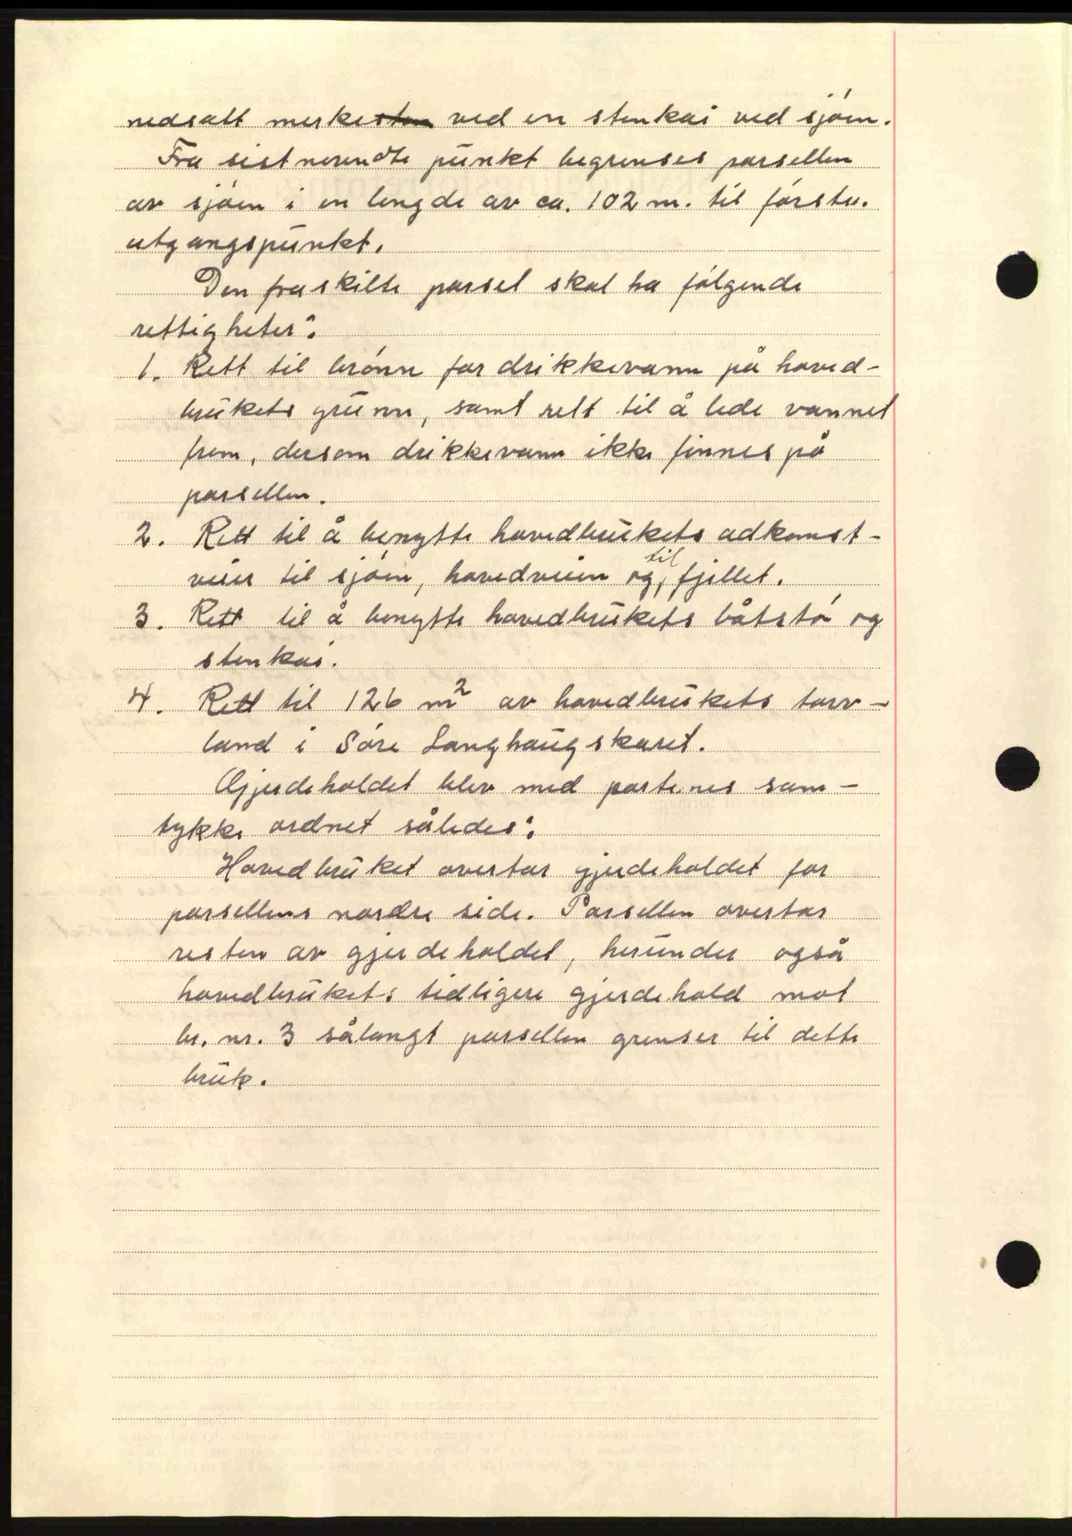 nedsatt merkesten ved en stenkai ved sjøen.
Fra sistnevndte punkt begrenses parsellen
av sjøen i en lengde av ca. 102 m. til første.
utgangspunkt.
Den fraskilte parsel skal ha følgende
rettigheter:
1. Rett til brønn for drikkevann på hoved-
brukets grunn, samt rett til å lede vannet
frem, dersom drikkevann ikke finnes på
parsellen.
2. Rett til å benytte hovedbrukets adkomst-
veier til sjøen, hovedveien og til fjellet.
3. Rett til å benytte hovedbrukets båtstø og
stenkai.
4. Rett til 126 m² av hovedbrukets torv-
land i Søre Langhaugskaret.
Gjerdeholdet blev med partenes sam-
tykke ordnet således:
Hovedbruket overtar gjerdeholdet for
parsellens nordre side. Parsellen overtar
resten av gjerdeholdet, herunder også
hovedbrukets tidligere gjerdehold mot
br. nr. 3 sålangt parsellen grenser til dette
bruk.